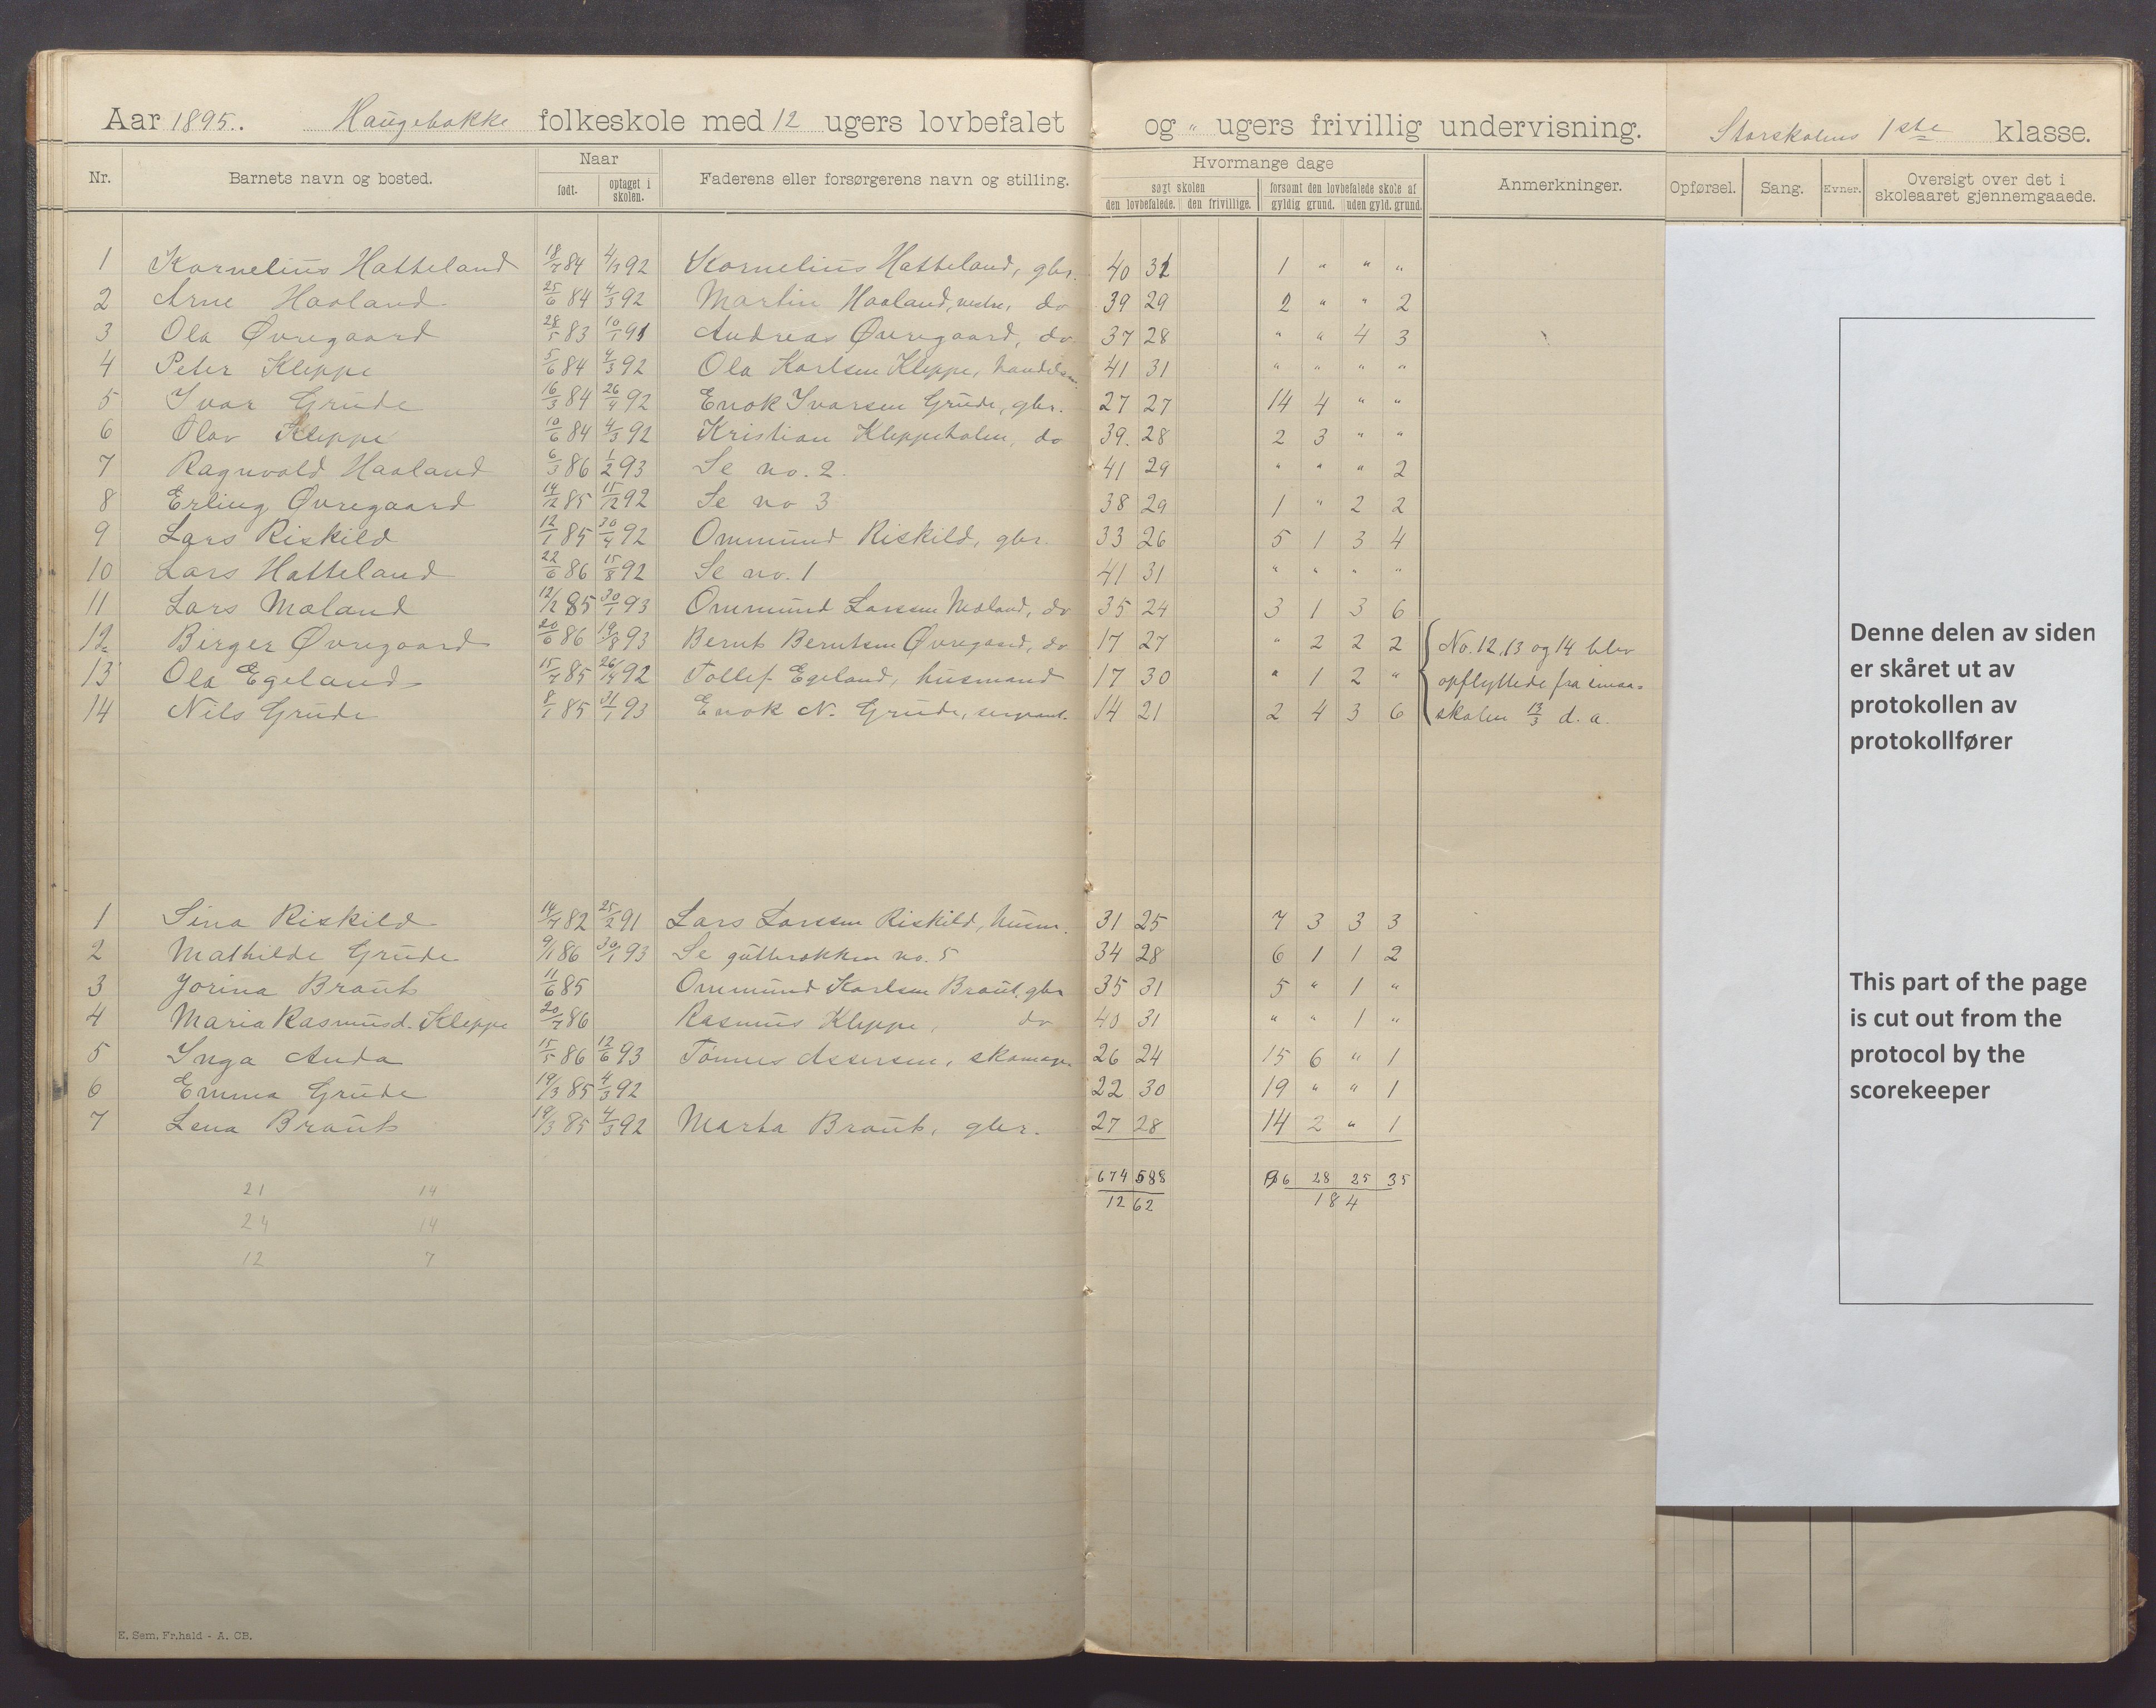 Aar 1895. Haugebakke folkeskole med 12 ugers lovbefalet og " ugers frivillig undervisning. Storskolens 1ste klasse.
Nr. Barnets navn og bosted. Naar Faderens eller forsørgerens navn og stilling. Hvormange dage Anmerkninger. Opførsel. Sang. Evner. Oversigt over det i skoleaaret gjennemgaaede.
født. optaget i skolen. søgt skolen forsømt den lovbefalede skole af
den lovbefalede. den frivillige. gyldig grund. uden gyld. grund.
1 Kornelius Hatteland 18/7 84 4/3 92 Kornelius Hatteland, gbr. 40 31 1 " " "
2 Arne Haaland 25/6 84 4/3 92 Martin Haaland, vestre, do 39 29 2 " " 2
3 Ola Øvregaard 28/5 83 10/1 91 Andreas Øvregaard, do 37 28 " " 4 3
4 Peter Kleppe 5/6 84 4/3 92 Ola Karlsen Kleppe, handelsm. 41 31 " " " "
5 Ivar Grude 16/3 84 26/4 92 Enok Ivarsen Grude, gbr. 27 27 14 4 " "
6 Olav Kleppe 10/6 84 4/3 92 Kristian Kleppeholen, do 39. 28 2 3 " "
7 Ragnvald Haaland 6/3 86 1/2 93 Se no. 2. 41 29 " " " 2
8 Erling Øvregaard 14/12 85 15/12 92 Se no 3 38 29 1 " 2 2
9 Lars Riskild 12/1 85 30/4 92 Ommund Riskild, gbr. 33 26 5 1 3 4
10 Lars Hatteland 22/6 86 15/8 92 Se no. 1 41 31 " " " "
11 Lars Mæland 12/2 85 30/1 93 Ommund Larsen Mæland, do 35 24 3 1 3 6
12 Birger Øvregaard 20/6 86 19/8 93 Bernt Berntsen Øvregaard, do 17 27 " 2 2 2 No. 12, 13 og 14 blev
13 Ola Egeland 15/7 85 26/4 92 Tollef Egeland, husmand 17 30 " 1 2 " opflyttede fra smaa-
14 Nils Grude 8/1 85 31/1 93 Enok N. Grude, sergeant. 14 21 2 4 3 6 skolen 13/3 d. a.
1 Sina Riskild 14/7 82 25/2 91 Lars Larsen Riskild, husm. 31 25 7 3 3 3
2 Mathilde Grude 9/1 86 30/1 93 Se gutterækken no. 5 34 28 6 1 1 2
3 Jorina Braut 11/6 85 Ommund Karlsen Braut, gbr 35 31 5 " 1 "
4 Maria Rasmusd. Kleppe 20/7 86 Rasmus Kleppe, do 40 31 " " 1 "
5 Inga Anda 15/5 86 12/6 93 Tønnes Assersen, skomager 26 24 15 6 " 1
6 Emma Grude 19/3 85 4/3 92 22 30 19 " " 1
7 Lena Braut 19/3 85 4/3 92 Marta Braut, gbr. 27 28 14 2 " 1
674 588 96 28 25 35
1262 184
21 14
24 14
12 7
E. Sem, Fr.hald - A. CB.
Denne delen av siden
er skåret ut av
protokollen av
protokollfører
This part of the page
is cut out from the
protocol by the
scorekeeper